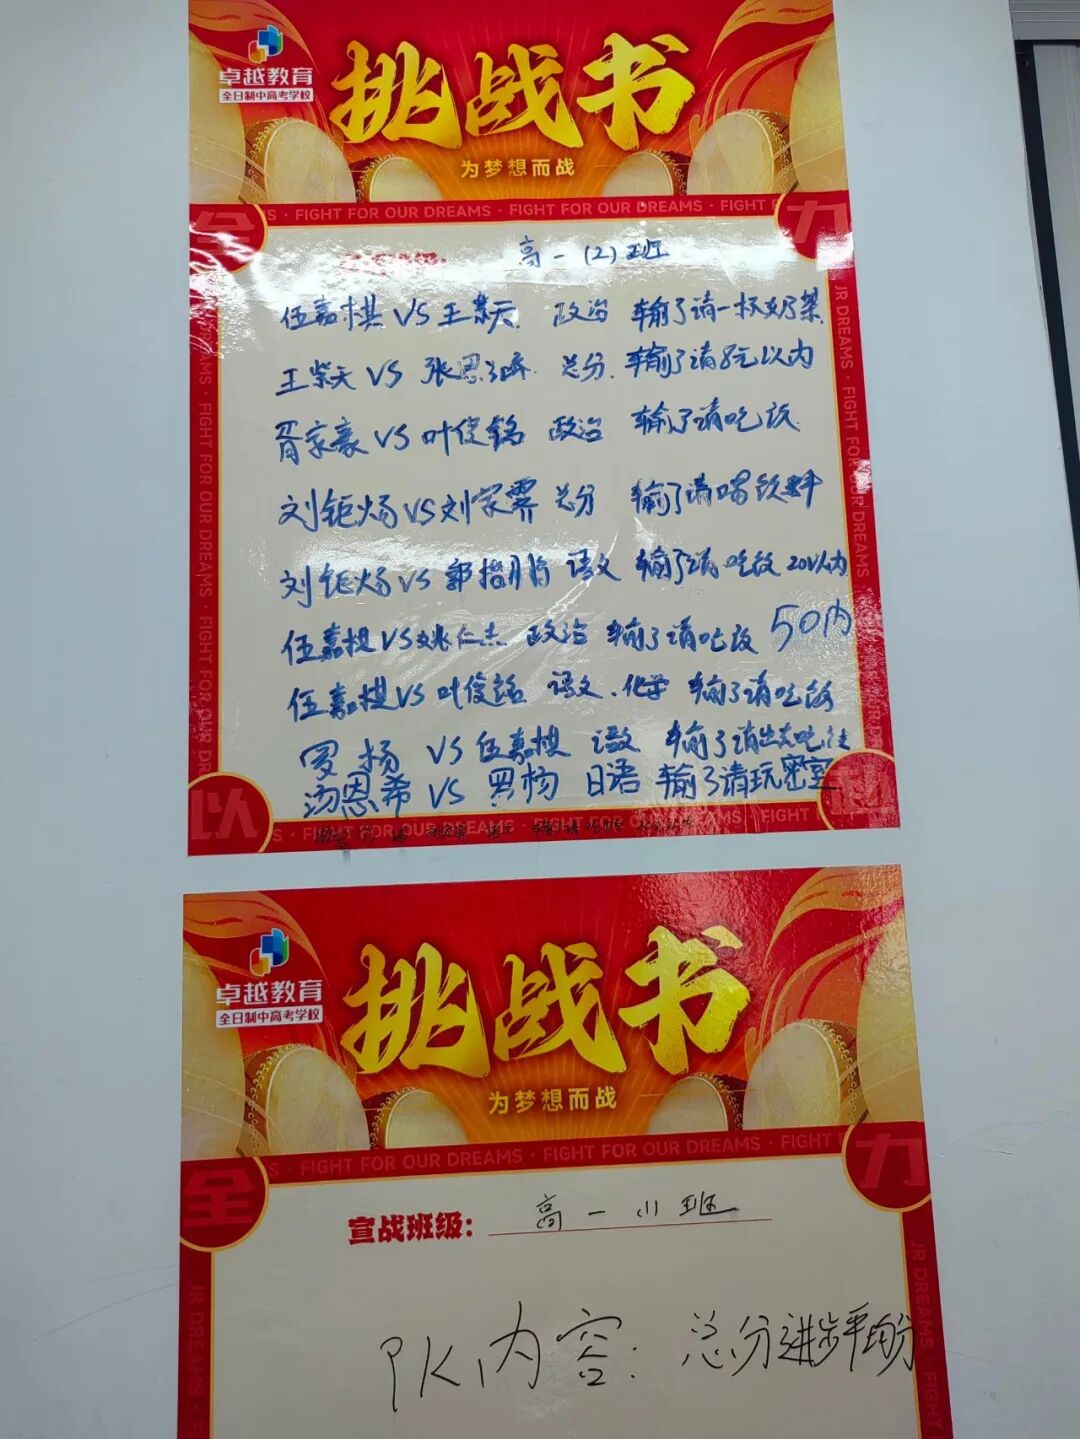 卓越教育
全日制中高考学校
挑战书
为梦想而战
全 力
S · FIGHT FOR OUR DREAMS · FIGHT FOR OUR DREAMS · FIGHT F
高一(2)班
伍嘉棋 VS 王紫天 政治 输了请一杯奶茶
王紫天 VS 张恩 总分 输了请8元以内
胥家豪 VS 叶俊铭 政治 输了请吃饭
刘钜炀 VS 刘家霁 总分 输了请喝饮料
刘钜炀 VS 郭 语文 输了请吃饭 20以内
伍嘉棋 VS 姚仁杰 政治 输了请吃饭 50内
伍嘉棋 VS 叶俊铭 语文、化学 输了请吃饭
罗扬 VS 伍嘉棋 语文 输了请出去吃
汤恩希 VS 罗杨 日语 输了请玩密室
以 赴
FIGHT FOR OUR DREAMS
JR DREAMS · FIGHT FOR OUR DREAMS · FIGHT FOR OUR D
卓越教育
全日制中高考学校
挑战书
为梦想而战
全 力
S · FIGHT FOR OUR DREAMS · FIGHT FOR OUR DREAMS · FIGHT F
宣战班级: 高一(1)班
PK内容: 总分进步平均分
JR DREAMS · FIGHT